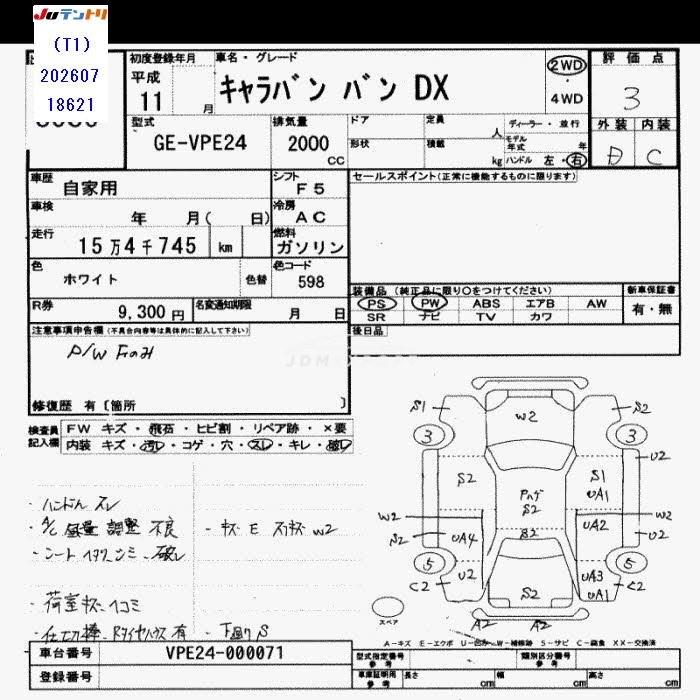 Juテントリ
(T1)
202607
18621
初度登録年月
平成
11
月
車名・グレード
キャラバン バン DX
2WD
4WD
評価点
3
型式
GE-VPE24
排気量
2000
CC
ドア
形状
定員
人
積載
kg
ディーラー・並行
モデル年式
年
ハンドル 左・右
外装 内装
D C
車歴
自家用
シフト
F5
セールスポイント(正常に機能するものに限ります)
車検
年 月( 日)
冷房
AC
走行
15万4千745 km
燃料
ガソリン
色
ホワイト
色替
色コード
598
装備品(純正品に限り○をつけてください)
PS PW ABS エアB AW
SR ナビ TV カワ
新車保証書
有・無
R券
9,300円
名変通知期限
月 日
後日品
注意事項申告欄(不具合内容等は具体的に記入して下さい)
P/W Fのみ
JDM
修復歴 有〔箇所 〕
検査員記入欄
FW キズ・飛石・ヒビ割・リペア跡・×要
内装 キズ・汚レ・コゲ・穴・スレ・キレ・破レ
・ハンドル スレ
・A/C 風量 調整 不良
・キズ E スリキズ W2
・シート ヘタリ シミ 破レ
・荷室 キズ ヘコミ
・仕切棒・タイヤハウス有
・下廻りS
S1
W2
S2
3
3
U2
S2
Pハゲ
S2
S1
UA1
W2
W2
S2
UA4
S2
UA2
U2
5
U2
5
C2
S2
UA3
UA1
C2
A2
A2
スペア
A-キズ E-エクボ U-凹み W-補修跡 S-サビ C-腐食 XX-交換済
車台番号
VPE24-000071
型式指定番号
参考
類別区分番号
参考
登録番号
車庫証明用
参考
長さ
cm
幅
cm
高さ
cm